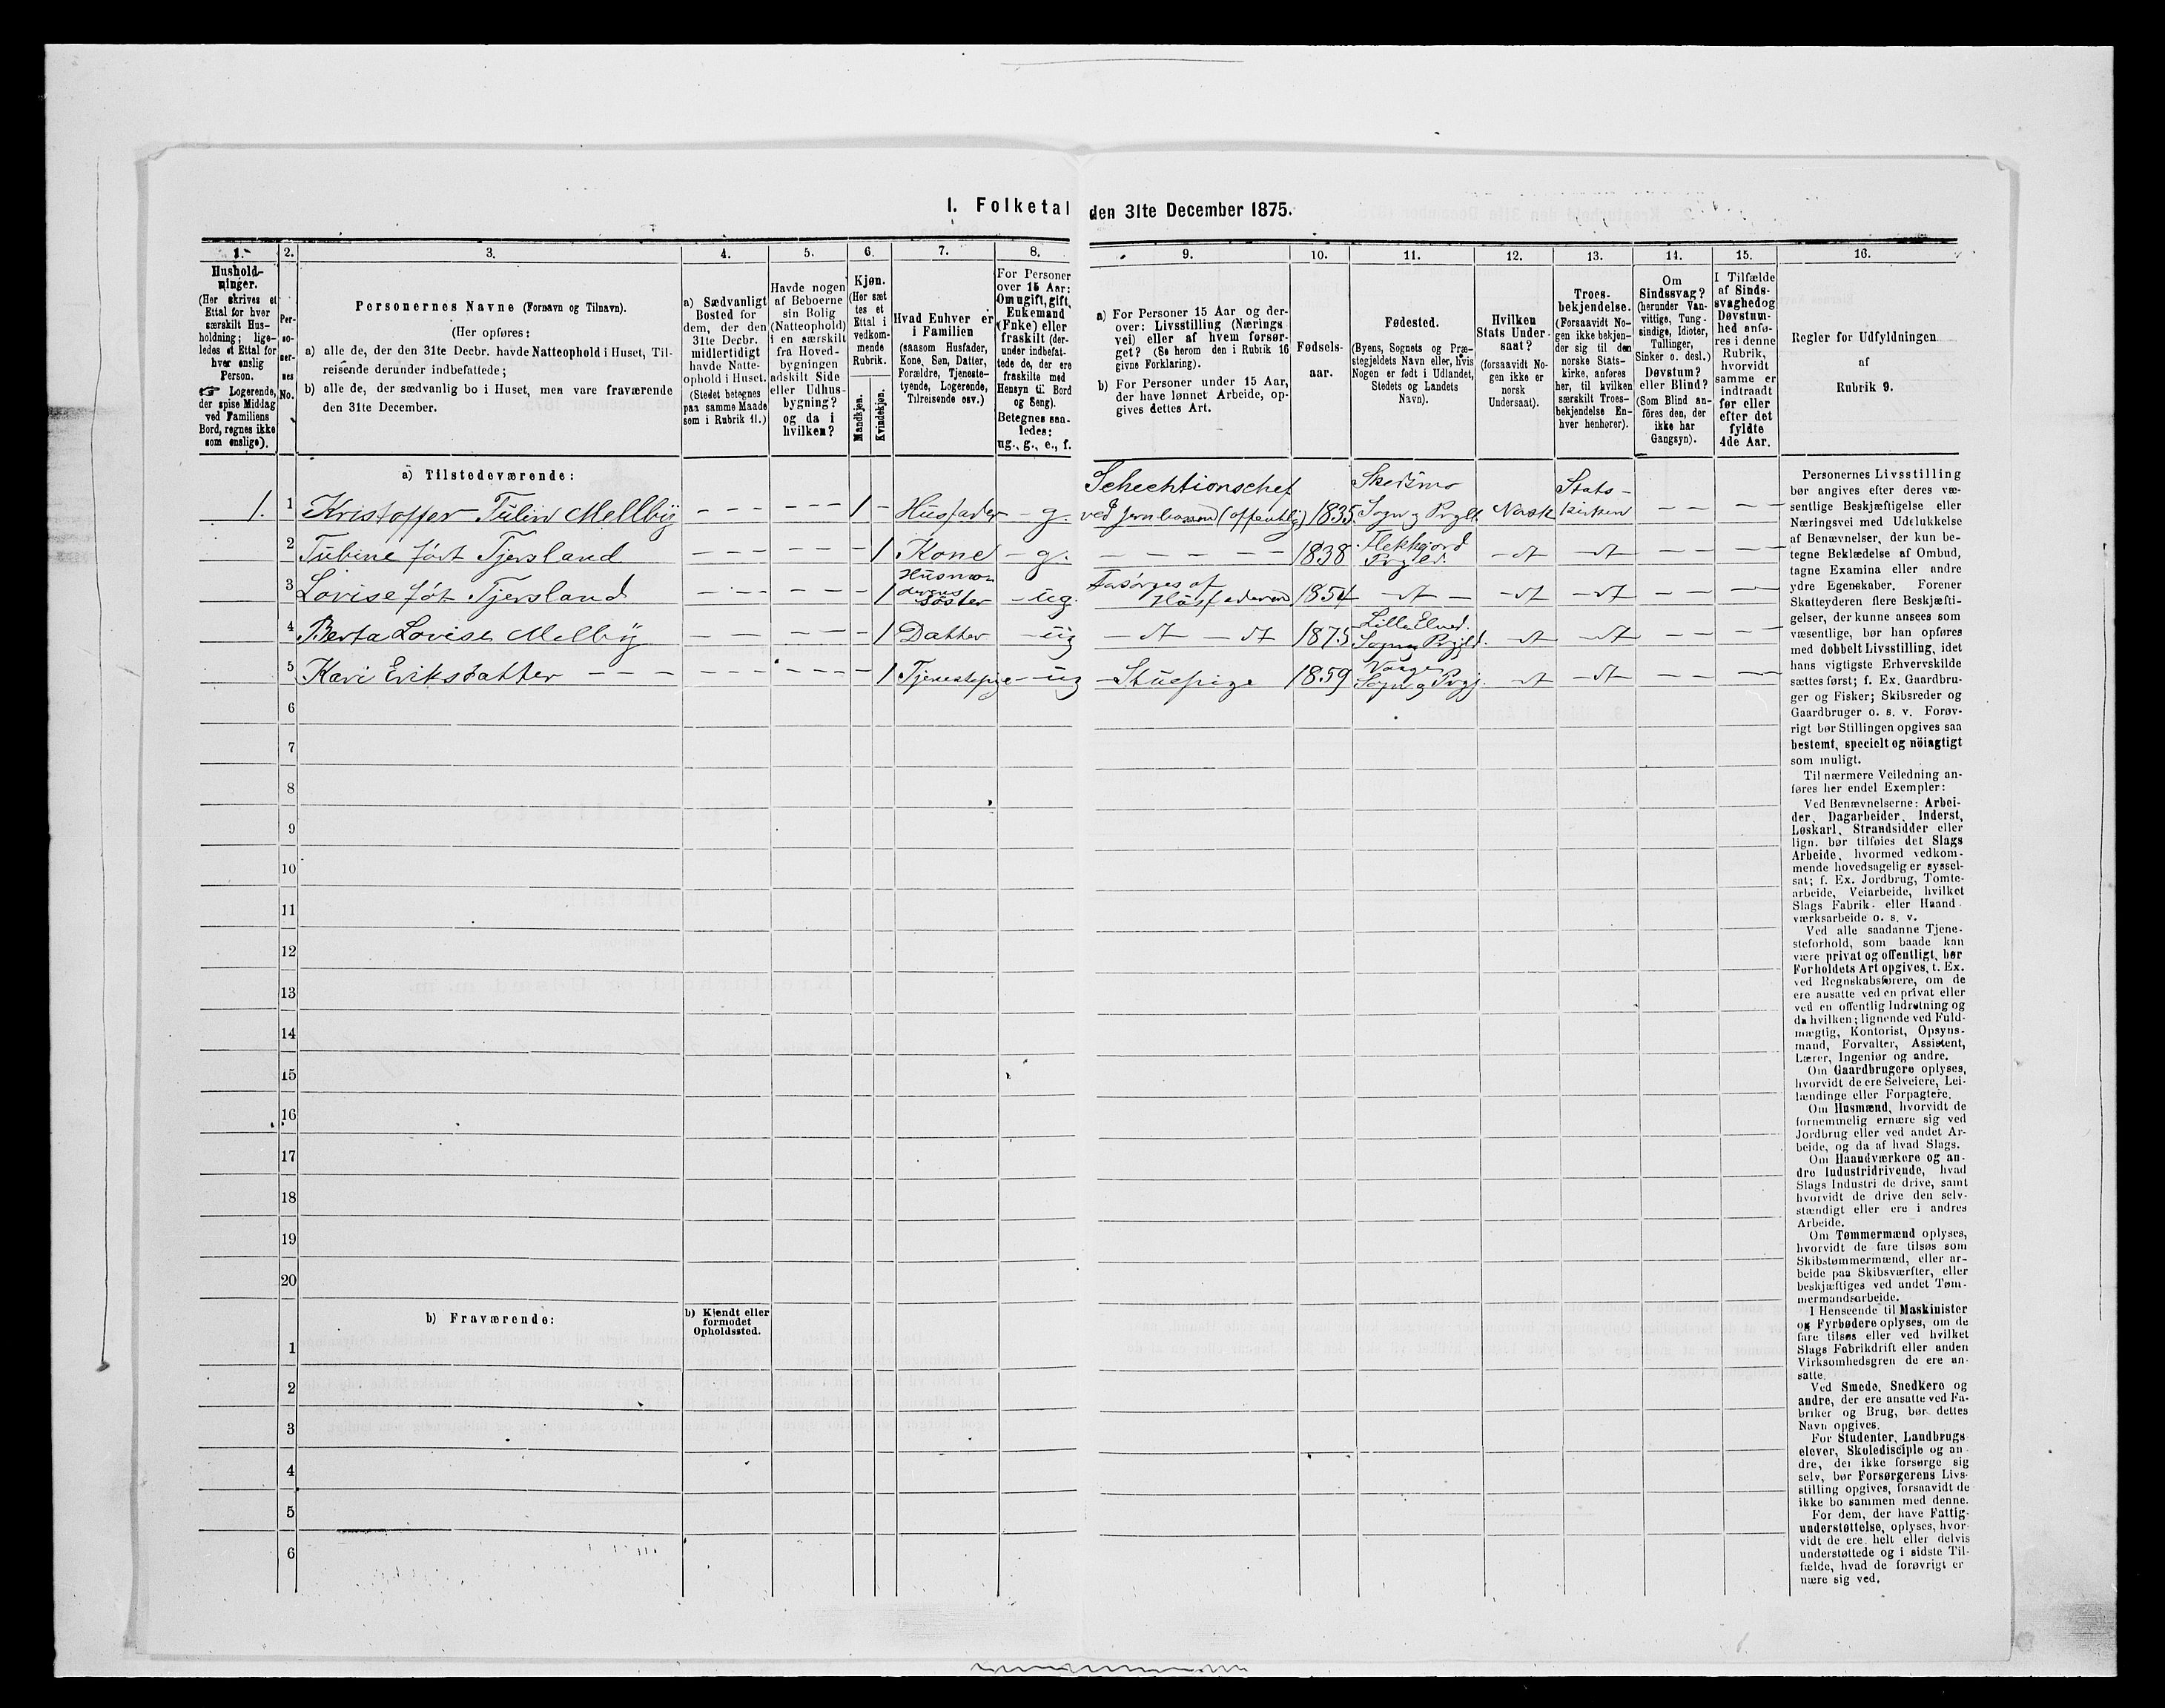 I. Folketal den 31te December 1875.
1.
Hushold-
ninger.
(Her skrives et
Ettal for hver
særskilt Hus-
holdning; lige-
ledes et Ettal for
hver enslig
Person.
☞ Logerende,
der spise Middag
ved Familiens
Bord, regnes ikke
som enslige).
2.
Per-
so-
ner-
nes
No.
3.
Personernes Navne (Fornavn og Tilnavn).
(Her opføres:
a) alle de, der den 31te Decbr. havde Natteophold i Huset, Til-
reisende derunder indbefattede;
b) alle de, der sædvanlig bo i Huset, men vare fraværende
den 31te December.
4.
a) Sædvanligt
Bosted for
dem, der den
31te Decbr.
midlertidigt
havde Natte-
ophold i Huset.
(Stedet betegnes
paa samme Maade
som i Rubrik 11.)
5.
Havde nogen
af Beboerne
sin Bolig
(Natteophold)
i en særskilt
fra Hoved-
bygningen
adskilt Side
eller Udhus-
bygning?
og da i
hvilken?
6.
Kjøn.
(Her sæt
tes et
Ettal i
vedkom-
mende
Rubrik.
Mandkjøn.
Kvindekjøn.
7.
Hvad Enhver er
i Familien
(saasom Husfader,
Kone, Søn, Datter,
Forældre, Tjeneste-
tyende, Logerende,
Tilreisende osv.)
8.
For Personer
over 15 Aar:
Om ugift, gift,
Enkemand
(Enke) eller
fraskilt (der-
under indbefat-
tede de, der ere
fraskilte med
Hensyn til Bord
og Seng).
Betegnes saa-
ledes:
ug., g., e., f.
9.
a) For Personer 15 Aar og der-
over: Livsstilling (Nærings
vei) eller af hvem forsør-
get? (Se herom den i Rubrik 16
givne Forklaring).
b) For Personer under 15 Aar,
der have lønnet Arbeide, op-
gives dettes Art.
10.
Fødsels-
aar.
11.
Fødested.
(Byens, Sognets og Præ-
stegjeldets Navn eller, hvis
Nogen er født i Udlandet,
Stedets og Landets
Navn).
12.
Hvilken
Stats Under-
saat?
(forsaavidt No-
gen ikke er
norsk
Undersaat).
13.
Troes-
bekjendelse.
(Forsaavidt No-
gen ikke bekjen-
der sig til den
norske Stats-
kirke, anføres
her, til hvilken
særskilt Troes-
bekjendelse En-
hver henhører).
14.
Om
Sindssvag?
(herunder Van-
vittige, Tung-
sindige, Idioter,
Tullinger,
Sinker o. desl.)
Døvstum?
eller Blind?
(Som Blind an-
føres den, der
ikke har
Gangsyn).
15.
I Tilfælde
af Sinds-
svaghed og
Døvstum-
hed anfø-
res i denne
Rubrik,
hvorvidt
samme er
indtraadt
før eller
efter det
fyldte
4de Aar.
16.
Regler for Udfyldningen
af
Rubrik 9.
a) Tilstedeværende:
1. 1 Kristoffer Tulin Mellby - - - - - - - 1 Husfader - g. Schechtionschef ved Jernbanen (offentlig) 1835. Skedsmo Sogn og Prgld. Norsk Stats-kirken - - - -
2 Tubine født Tjersland - - - - - - - 1 Kone - g. - - - - - 1838 Flekkfjord Prgld. - dt - dt -
3 Lovise føt Tjersland - - - - - - 1 Husmoderens Søster - ug. Forsørges af Husfaderen 1854 - dt - - dt - dt - - - -
4 Berta Lovise Mellby - - - - - - - 1 Datter - ug - dt - dt 1875 Lille Elved. Sogn og Prgjld. - dt - dt - - - -
5 Kari Eriksdatter - - - - - - - 1 Tjenestepige - ug - Stuepige 1859 Vaage Sogn og Prgj. - dt - dt - - - -
6
7
8
9
10
11
12
13
14
15
16
17
18
19
20
b) Fraværende:
b) Kjendt eller
formodet
Opholdssted.
1
2
3
4
5
6
Personernes Livsstilling
bør angives efter deres væ-
sentlige Beskjæftigelse eller
Næringsvei med Udelukkelse
af Benævnelser, der kun be-
tegne Beklædelse af Ombud,
tagne Examina eller andre
ydre Egenskaber. Forener
Skatteyderen flere Beskjæfti-
gelser, der kunne ansees som
væsentlige, bør han opføres
med dobbelt Livsstilling, idet
hans vigtigste Erhvervskilde
sættes først; f. Ex. Gaardbru-
ger og Fisker; Skibsreder og
Gaardbruger o. s. v. Forøv-
rigt bør Stillingen opgives saa
bestemt, specielt og nöiagtigt
som muligt.
Til nærmere Veiledning an-
føres her endel Exempler:
Ved Benævnelserne: Arbei-
der, Dagarbeider, Inderst,
Løskarl, Strandsidder eller
lign. bør tilføies det Slags
Arbeide, hvormed vedkom-
mende hovedsagelig er syssel-
sat; f. Ex. Jordbrug, Tomte-
arbeide, Veiarbeide, hvilket
Slags Fabrik- eller Haand-
værksarbeide o. s. v.
Ved alle saadanne Tjene-
steforhold, som baade kan
være privat og offentligt, bør
Forholdets Art opgives, t. Ex.
ved Regnskabsførere, om de
ere ansatte ved en privat eller
ved en offentlig Indretning og
da hvilken; lignende ved Fuld-
mægtig, Kontorist, Opsyns-
mand, Forvalter, Assistent,
Lærer, Ingeniør og andre.
Om Gaardbrugere oplyses,
hvorvidt de ere Selveiere, Lei-
lændinge eller Forpagtere.
Om Husmænd, hvorvidt de
fornemmelig ernære sig ved
Jordbrug eller ved andet Ar-
beide, og da af hvad Slags.
Om Haandværkere og an-
dre Industridrivende, hvad
Slags Industri de drive, samt
hvorvidt de drive den selv-
stændigt eller ere i andres
Arbeide.
Om Tømmermænd oplyses,
hvorvidt de fare tilsøs som
Skibstømmermænd, eller ar-
beide paa Skibsværfter, eller
beskjæftiges ved andet Tøm-
mermandsarbeide.
I Henseende til Maskinister
og Fyrbødere oplyses, om de
fare tilsøs eller ved hvilket
Slags Fabrikdrift eller anden
Virksomhedsgren de ere an-
satte.
Ved Smede, Snedkere og
andre, der ere ansatte ved Fa-
briker og Brug, bør dettes
Navn opgives.
For Studenter, Landbrugs
elever, Skoledisciple og an-
dre, der ikke forsørge sig
selv, bør Forsørgerens Livs-
stilling opgives, forsaavidt de
ikke bo sammen med denne.
For dem, der have Fattig-
understøttelse, oplyses, hvor-
vidt de ere helt eller delvis
understøttede og i sidste Til-
fælde, hvad de forøvrigt er
nære sig ved.